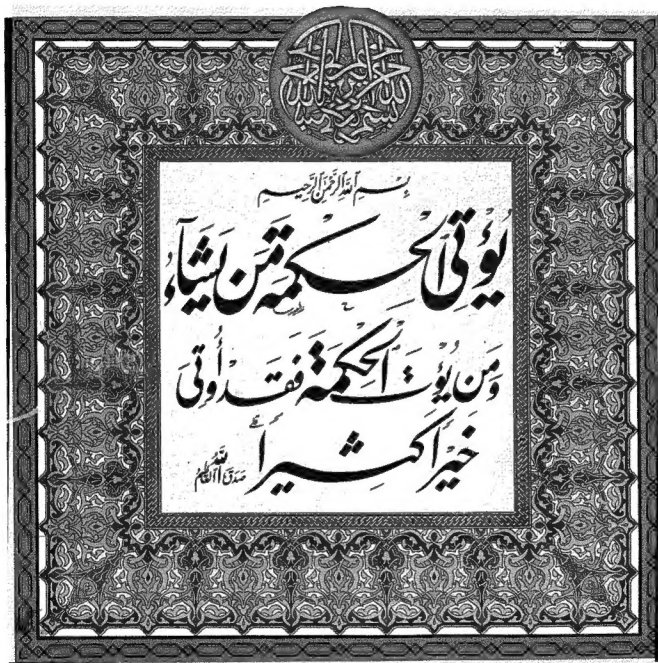 بسم الله الرحمن الرحيم
بِسْمِ ٱللَّهِ ٱلرَّحْمَٰنِ ٱلرَّحِيمِ
يُؤْتِى ٱلْحِكْمَةَ مَن يَشَآءُ
وَمَن يُؤْتَ ٱلْحِكْمَةَ فَقَدْ أُوتِىَ
خَيْراً كَثِيراً صَدَقَ اللَّهُ العَظِيمُ